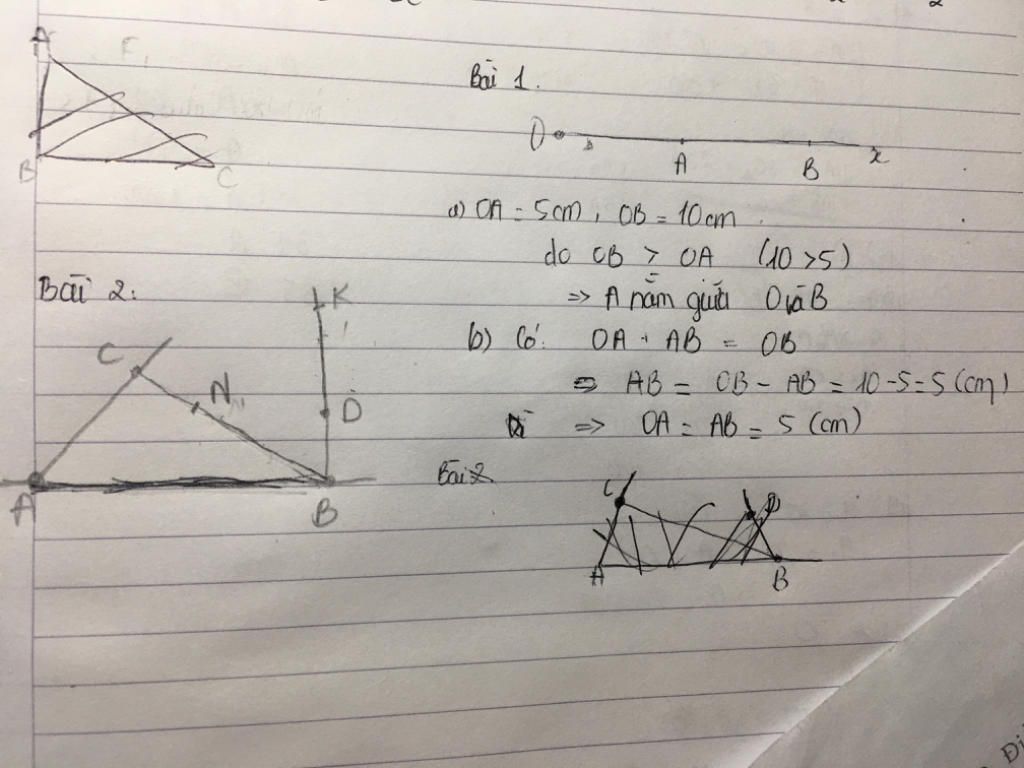 A
F
B
C
Bài 1.
O
A
B
x
a) OA = 5cm, OB = 10cm
do OB > OA (10 > 5)
=> A nằm giữa O và B
b) Có: OA + AB = OB
=> AB = OB - AB = 10 - 5 = 5 (cm)
=> OA = AB = 5 (cm)
Bài 2:
K
C
N
D
A
B
Bài 2
C
D
A
B